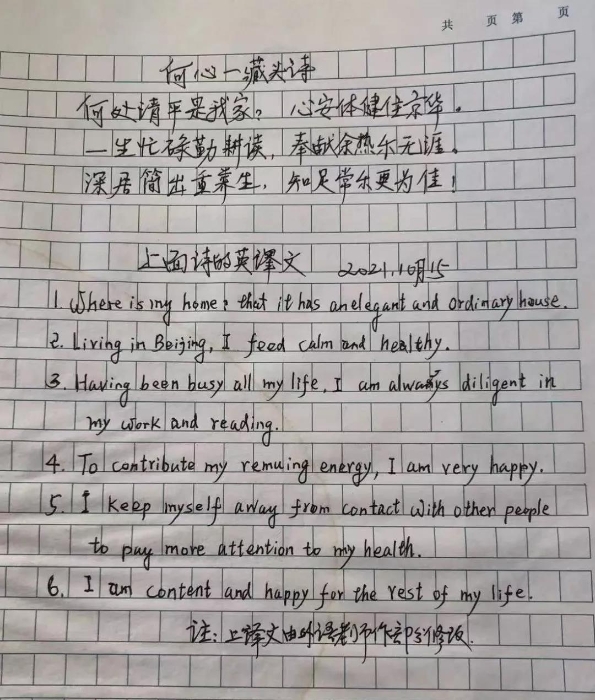 共 页 第 页
何心一藏头诗
何处清平是我家？ 心安体健住京华。
一生忙碌勤耕读，奉献余热乐无涯。
深居简出重菜生，知足常乐更为佳！
上面诗的英译文 2021.10月15
1. Where is my home? that it has an elegant and ordinary house.
2. Living in Beijing, I feed calm and healthy.
3. Having been busy all my life, I am always diligent in
my work and reading.
4. To contribute my remuing energy, I am very happy.
5. I keep myself away from contact with other people
to pay more attention to my health.
6. I am content and happy for the rest of my life.
注：上译文由外语教师作部分修改.